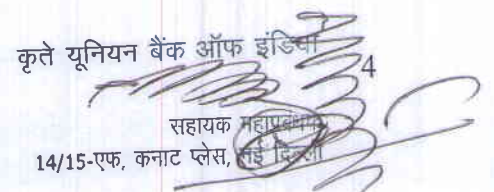 कृते यूनियन बैंक ऑफ इंडिया
4
सहायक महाप्रबंधक
14/15-एफ, कनाट प्लेस, नई दिल्ली